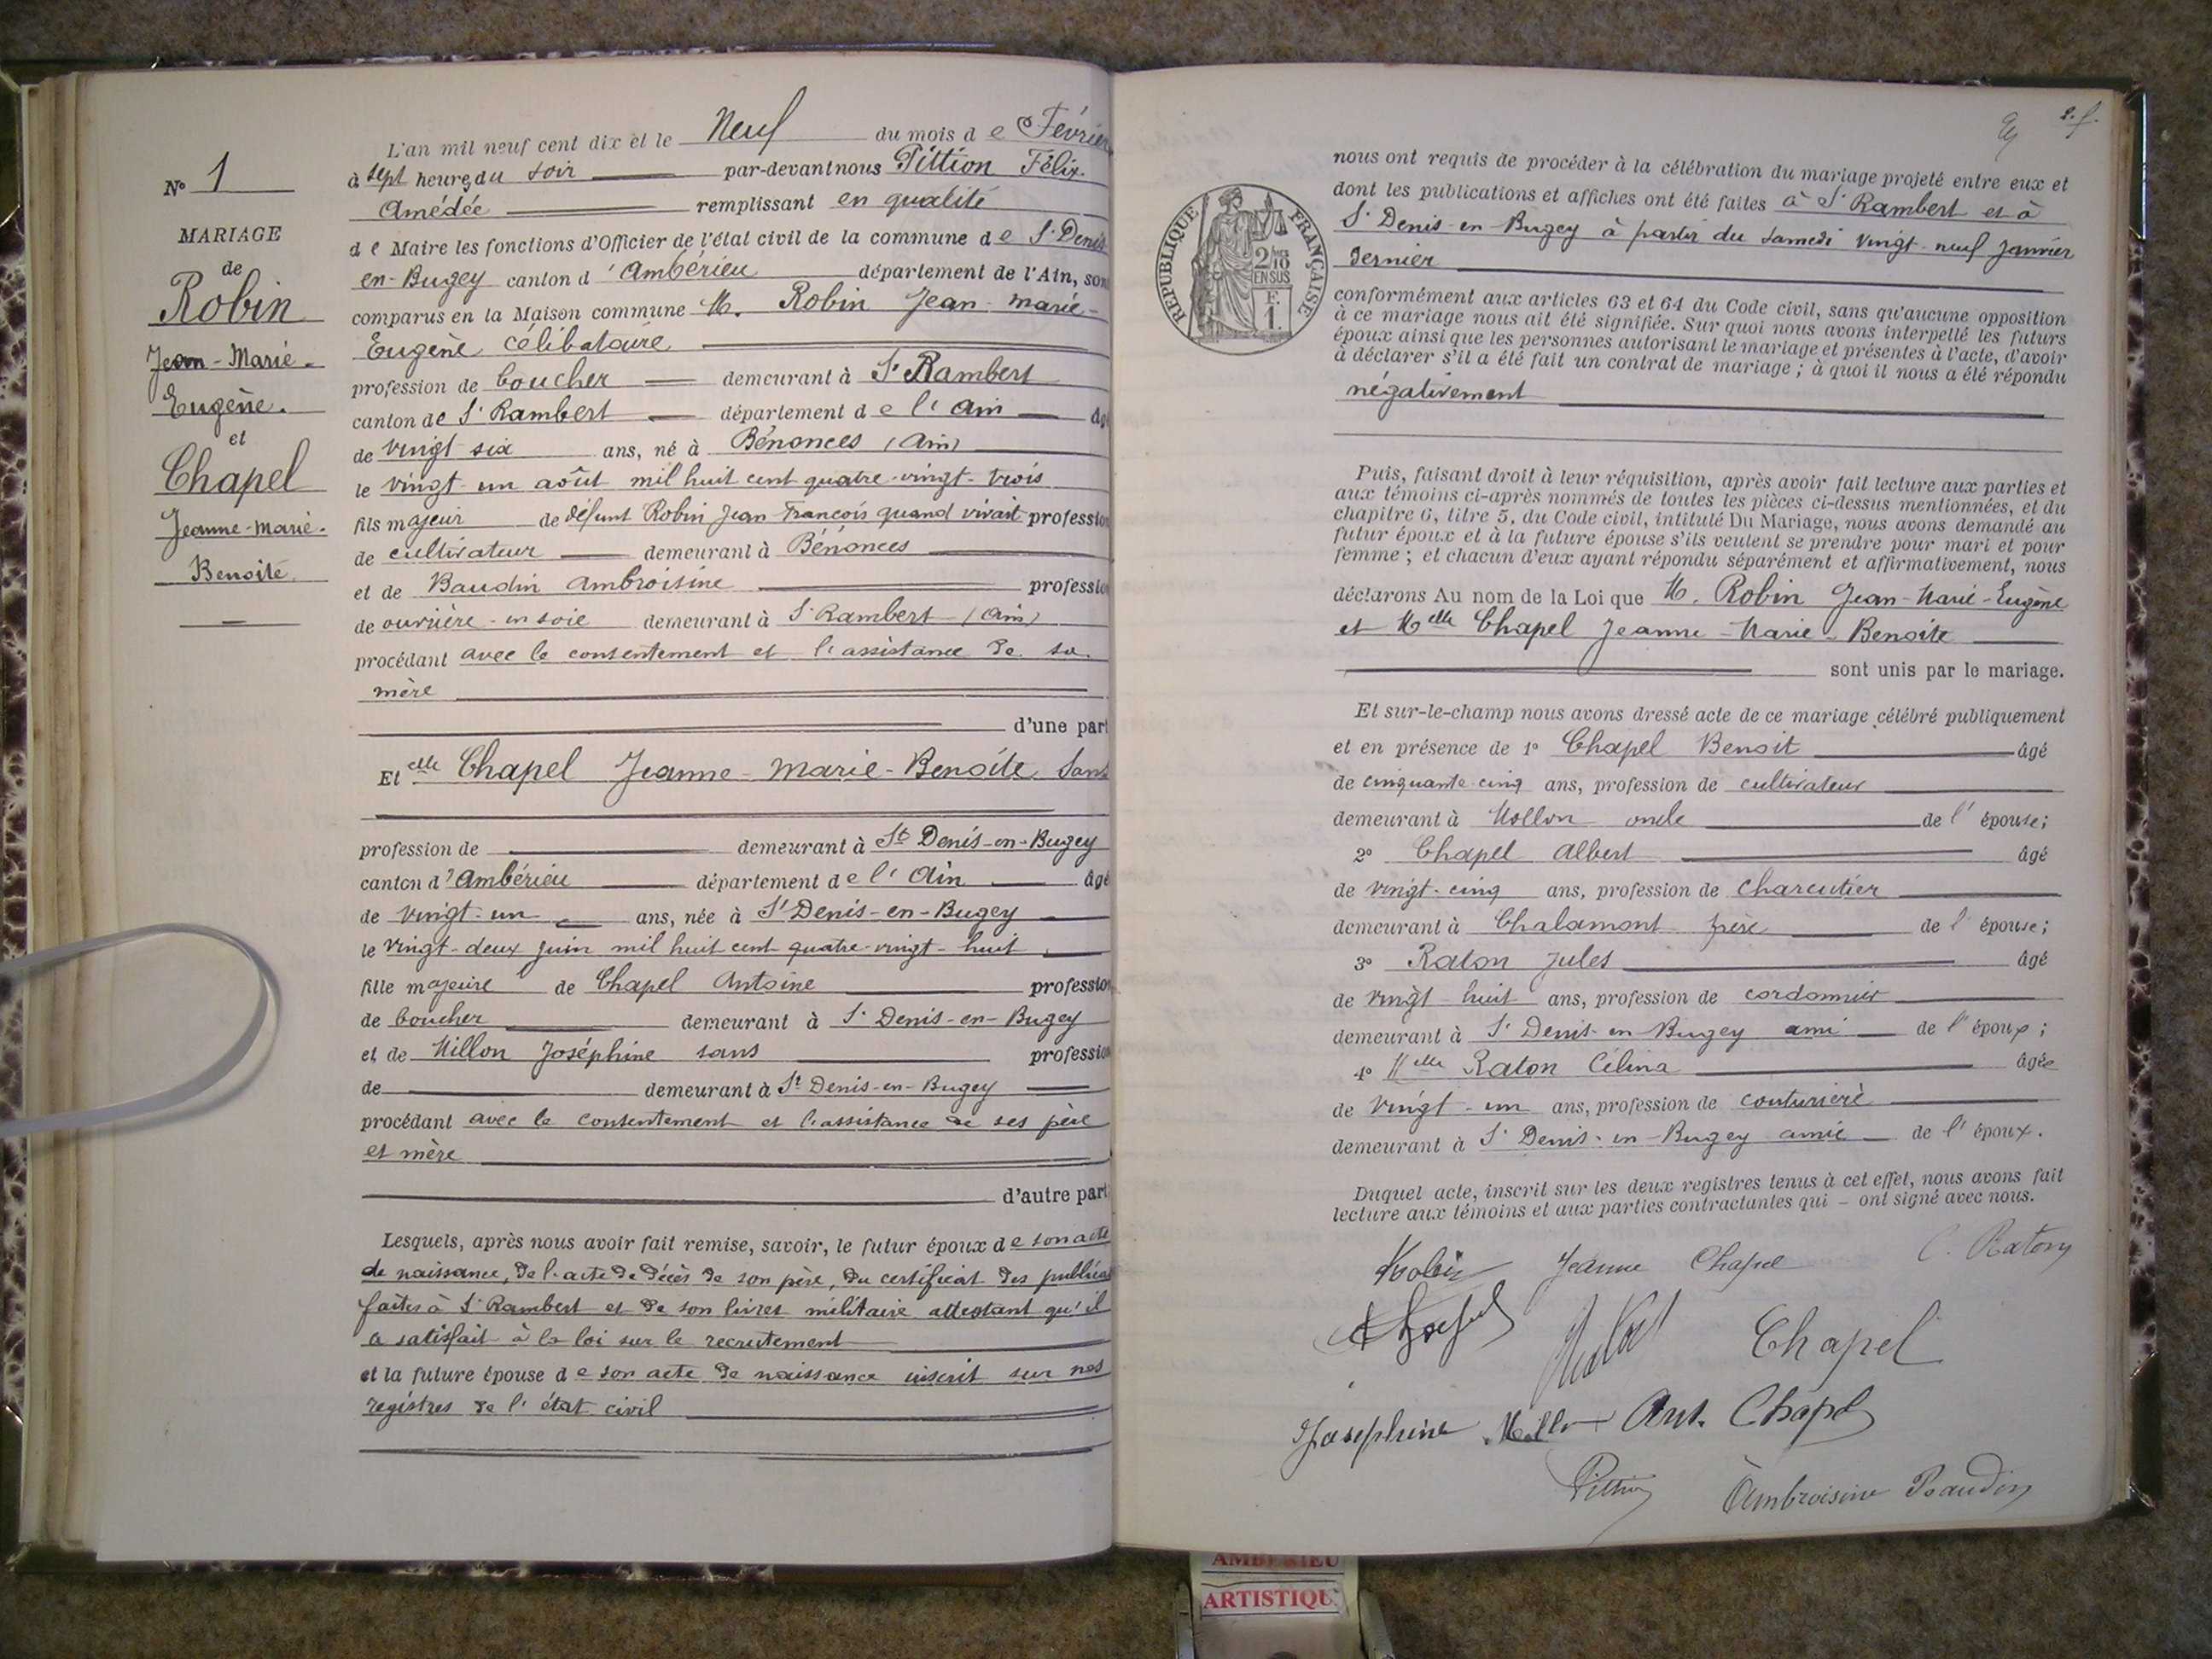 N° 1
MARIAGE
de
Robin
Jean-Marie-
Eugène.
et
Chapel
Jeanne-Marie-
Benoîte.
L'an mil neuf cent dix et le Neuf du mois de Février
à sept heures du soir par-devant nous Pittion Félix-
Amédée remplissant en qualité
de Maire les fonctions d'Officier de l'état civil de la commune de St Denis-
en-Bugey canton d'Ambérieu département de l'Ain, son
comparus en la Maison commune M. Robin Jean-Marie-
Eugène célibataire
profession de boucher demeurant à St Rambert
canton de St Rambert département de l'Ain âgé
de vingt-six ans, né à Bénonces (Ain)
le vingt-un août mil huit cent quatre-vingt-trois
fils majeur de défunt Robin Jean-François quand vivait profession
de cultivateur demeurant à Bénonces
et de Baudin Ambroisine profession
de ouvrière-en-soie demeurant à St Rambert (Ain)
procédant avec le consentement et l'assistance de sa
mère
d'une part
Et elle Chapel Jeanne-Marie-Benoîte Sans
profession de demeurant à St Denis-en-Bugey
canton d'Ambérieu département de l'Ain âgé
de vingt-un ans, née à St Denis-en-Bugey
le vingt-deux juin mil huit cent quatre-vingt-huit
fille majeure de Chapel Antoine profession
de boucher demeurant à St Denis-en-Bugey
et de Millon Joséphine sans profession
de demeurant à St Denis-en-Bugey
procédant avec le consentement et l'assistance de ses père
et mère
d'autre part
Lesquels, après nous avoir fait remise, savoir, le futur époux de son acte
de naissance, de l'acte de décès de son père, du certificat des publica
faites à St Rambert et de son livret militaire attestant qu'il
a satisfait à la loi sur le recrutement
et la future épouse de son acte de naissance inscrit sur nos
registres de l'état civil
2. f.
RÉPUBLIQUE FRANÇAISE
2/10
EN SUS
F.
1.
nous ont requis de procéder à la célébration du mariage projeté entre eux et
dont les publications et affiches ont été faites à St Rambert et à
St Denis-en-Bugey à partir du samedi vingt-neuf janvier
dernier
conformément aux articles 63 et 64 du Code civil, sans qu'aucune opposition
à ce mariage nous ait été signifiée. Sur quoi nous avons interpellé les futurs
époux ainsi que les personnes autorisant le mariage et présentes à l'acte, d'avoir
à déclarer s'il a été fait un contrat de mariage ; à quoi il nous a été répondu
négativement
Puis, faisant droit à leur réquisition, après avoir fait lecture aux parties et
aux témoins ci-après nommés de toutes les pièces ci-dessus mentionnées, et du
chapitre 6, titre 5, du Code civil, intitulé Du Mariage, nous avons demandé au
futur époux et à la future épouse s'ils veulent se prendre pour mari et pour
femme ; et chacun d'eux ayant répondu séparément et affirmativement, nous
déclarons Au nom de la Loi que M. Robin Jean-Marie-Eugène
et Melle Chapel Jeanne-Marie-Benoîte
sont unis par le mariage.
Et sur-le-champ nous avons dressé acte de ce mariage célébré publiquement
et en présence de 1° Chapel Benoit âgé
de cinquante-cinq ans, profession de cultivateur
demeurant à Mollon oncle de l'épouse ;
2° Chapel Albert âgé
de vingt-cinq ans, profession de charcutier
demeurant à Chalamont frère de l'épouse ;
3° Raton Jules âgé
de vingt-huit ans, profession de cordonnier
demeurant à St Denis-en-Bugey ami de l'époux ;
4° Melle Raton Célina âgée
de vingt-un ans, profession de couturière
demeurant à St Denis-en-Bugey amie de l'époux.
Duquel acte, inscrit sur les deux registres tenus à cet effet, nous avons fait
lecture aux témoins et aux parties contractantes qui - ont signé avec nous.
Robin Jeanne Chapel C. Raton
Chapel
Joséphine Millon Ant. Chapel
Pittion Ambroisine Baudin
AMBERIEU
ARTISTIQU